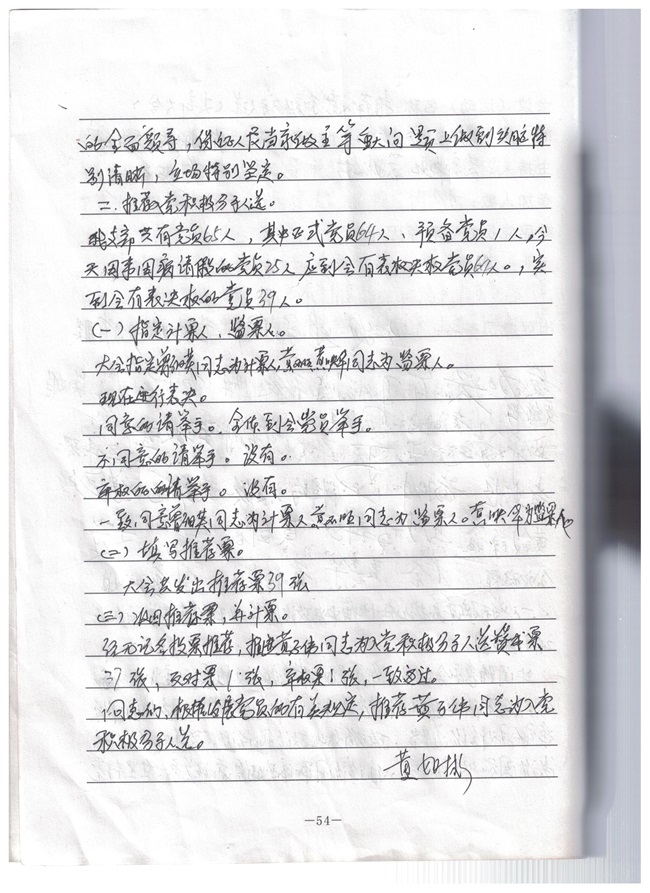 的全面领导，保证人民当家做主等重大问题上做到头脑特
别清晰，立场特别坚定。
二、推荐入党积极分子人选。
我支部共有党员65人，其中正式党员64人、预备党员1人，今
天因事因病请假的党员25人，应到会有表决权党员64人。，实
到会有表决权的党员39人。
(一)指定计票人、监票人。
大会指定 同志为计票人， 同志为监票人。
现在进行表决。
同意的请举手。全体到会党员举手。
不同意的请举手。没有。
弃权的的请举手。没有。
一致同意曾 同志为计票人， 同志为监票人。 为监票人
(二)填写推荐票。
大会共发出推荐票39张
(三)收回推荐票，并计票。
经无记名投票推荐，推选黄 伟同志为入党积极分子人选赞成票
37张，反对票1张，弃权票1张，一致通过。
同志们，根据发展党员的有关规定，推荐黄 伟同志为入党
积极分子人选。
黄
—54—